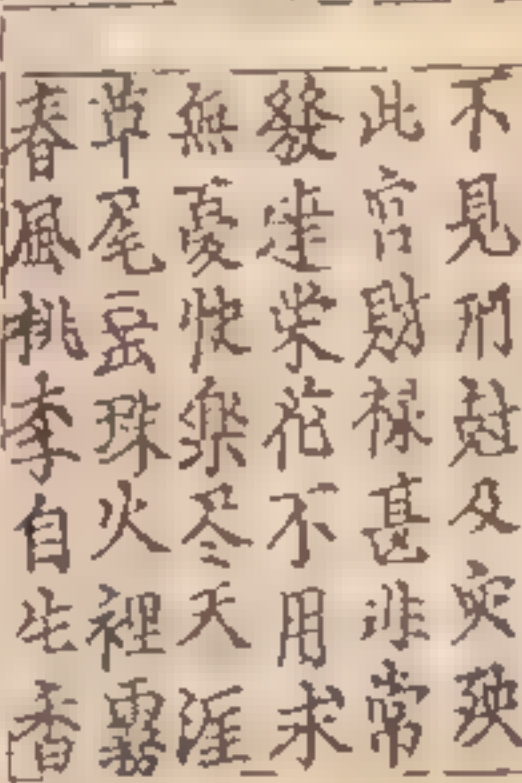 不見刑尅及灾殃
此宫財禄甚非常
發達荣花不用求
無憂快樂尽天涯
草尾露珠火裡霜
春風桃李自生香